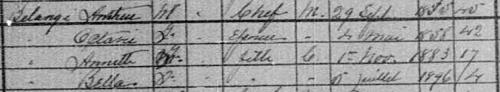 Belange Andrew M " Chef M 29 Sept 1855 45
" Odavie F " Epouse " 4 mai 1858 42
" Annette F " fille C 15 Nov 1883 17
" Bella F " " " 15 juillet 1896 4